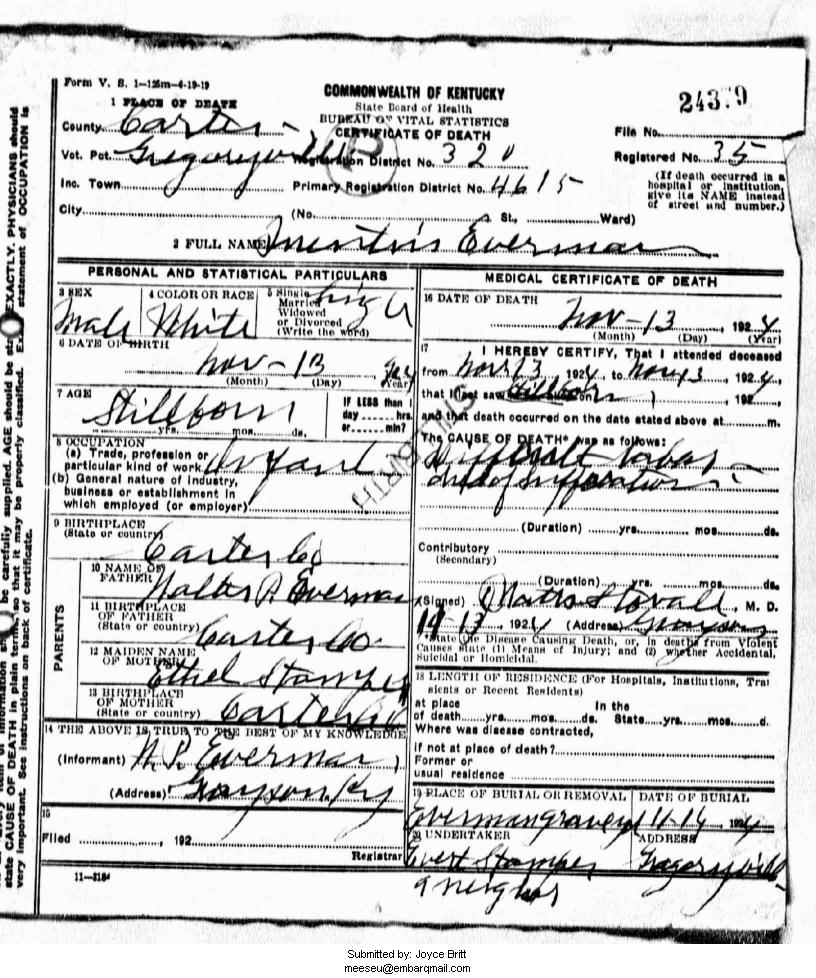 Form V. S. 1—125m—4-19-19
COMMONWEALTH OF KENTUCKY
State Board of Health
BUREAU OF VITAL STATISTICS
CERTIFICATE OF DEATH
24379
1 PLACE OF DEATH
County Carter
File No.
Vot. Pct. Gregoryville Registration District No. 320
Registered No. 35
Inc. Town Primary Registration District No. 4615
(If death occurred in a hospital or institution, give its NAME instead of street and number.)
City (No. St., Ward)
2 FULL NAME Everman
PERSONAL AND STATISTICAL PARTICULARS
3 SEX
Male
4 COLOR OR RACE
White
5 Single
Married
Widowed
or Divorced
(Write the word)
Single
6 DATE OF BIRTH
Nov - 13
(Month) (Day) (Year)
7 AGE
Stillborn
yrs. mos. ds.
IF LESS than 1
day hrs.
or min?
8 OCCUPATION
(a) Trade, profession or
particular kind of work Infant
(b) General nature of industry,
business or establishment in
which employed (or employer)
9 BIRTHPLACE
(State or country)
Carter Co
PARENTS
10 NAME OF
FATHER
Walter P. Everman
11 BIRTHPLACE
OF FATHER
(State or country)
Carter Co
12 MAIDEN NAME
OF MOTHER
Ethel Stamper
13 BIRTHPLACE
OF MOTHER
(State or country)
Carter Co
14 THE ABOVE IS TRUE TO THE BEST OF MY KNOWLEDGE
(Informant) W. P. Everman
(Address) Grayson Ky
15
Filed , 192
Registrar
11—3184
MEDICAL CERTIFICATE OF DEATH
16 DATE OF DEATH
Nov - 13, 1924
(Month) (Day) (Year)
17 I HEREBY CERTIFY, That I attended deceased
from Nov 13, 1924, to Nov 13, 1924,
that I last saw Stillborn , 192 ,
and that death occurred on the date stated above at m.
The CAUSE OF DEATH* was as follows:
Difficult labor
died of suffocation
STILLBIRTH
(Duration) yrs. mos. ds.
Contributory
(Secondary)
(Duration) yrs. mos. ds.
(Signed) Stovall, M. D.
11-13, 1924 (Address) Grayson
*State the Disease Causing Death, or, in deaths from Violent
Causes state (1) Means of Injury; and (2) whether Accidental,
Suicidal or Homicidal.
18 LENGTH OF RESIDENCE (For Hospitals, Institutions, Tran
sients or Recent Residents)
at place In the
of death yrs. mos. ds. State yrs. mos. d.
Where was disease contracted,
if not at place of death?
Former or
usual residence
19 PLACE OF BURIAL OR REMOVAL
Everman gravey
DATE OF BURIAL
11-14 1924
20 UNDERTAKER
Evert Stamper
a neighbor
ADDRESS
Gregoryville
be carefully supplied. AGE should be EXACTLY. PHYSICIANS should
state CAUSE OF DEATH in plain terms, so that it may be properly classified. statement of OCCUPATION is
very important. See instructions on back of certificate.
Submitted by: Joyce Britt
meeseu@embarqmail.com